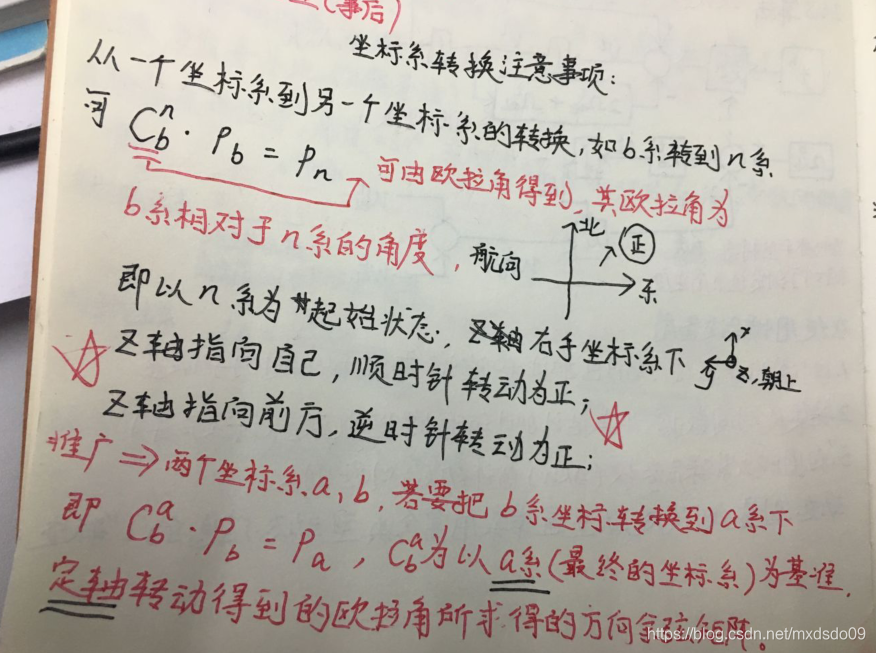 (事后)
坐标系转换注意事项:
从一个坐标系到另一个坐标系的转换,如b系转到n系
可 C_b^n · P_b = P_n
可由欧拉角得到,其欧拉角为
b系相对于n系的角度,航向
北 正
东
即以n系为起始状态,Z轴右手坐标系下
Z轴指向自己,顺时针转动为正;
x
y Z,朝上
Z轴指向前方,逆时针转动为正;
推广⇒两个坐标系a,b,若要把b系坐标转换到a系下
即 C_b^a · P_b = P_a, C_b^a为以a系(最终的坐标系)为基准,
定轴转动得到的欧拉角所求得的方向余弦矩阵。
https://blog.csdn.net/mxdsdo09